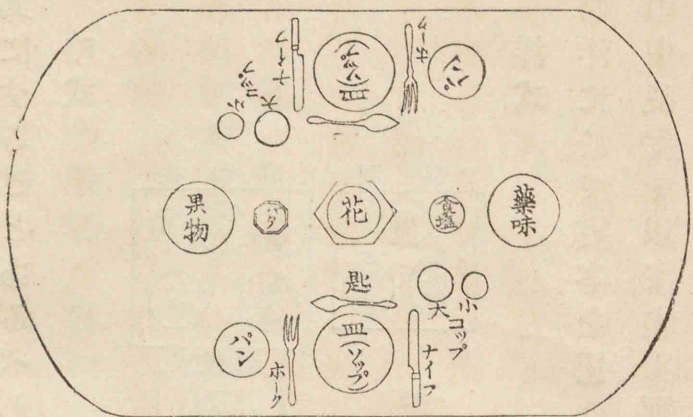 パン
ホーク
皿(ソップ)
ナイフ
大
コップ
小
果物
バタ
花
食塩
藥味
匙
大
小
コップ
パン
ホーク
皿(ソップ)
ナイフ